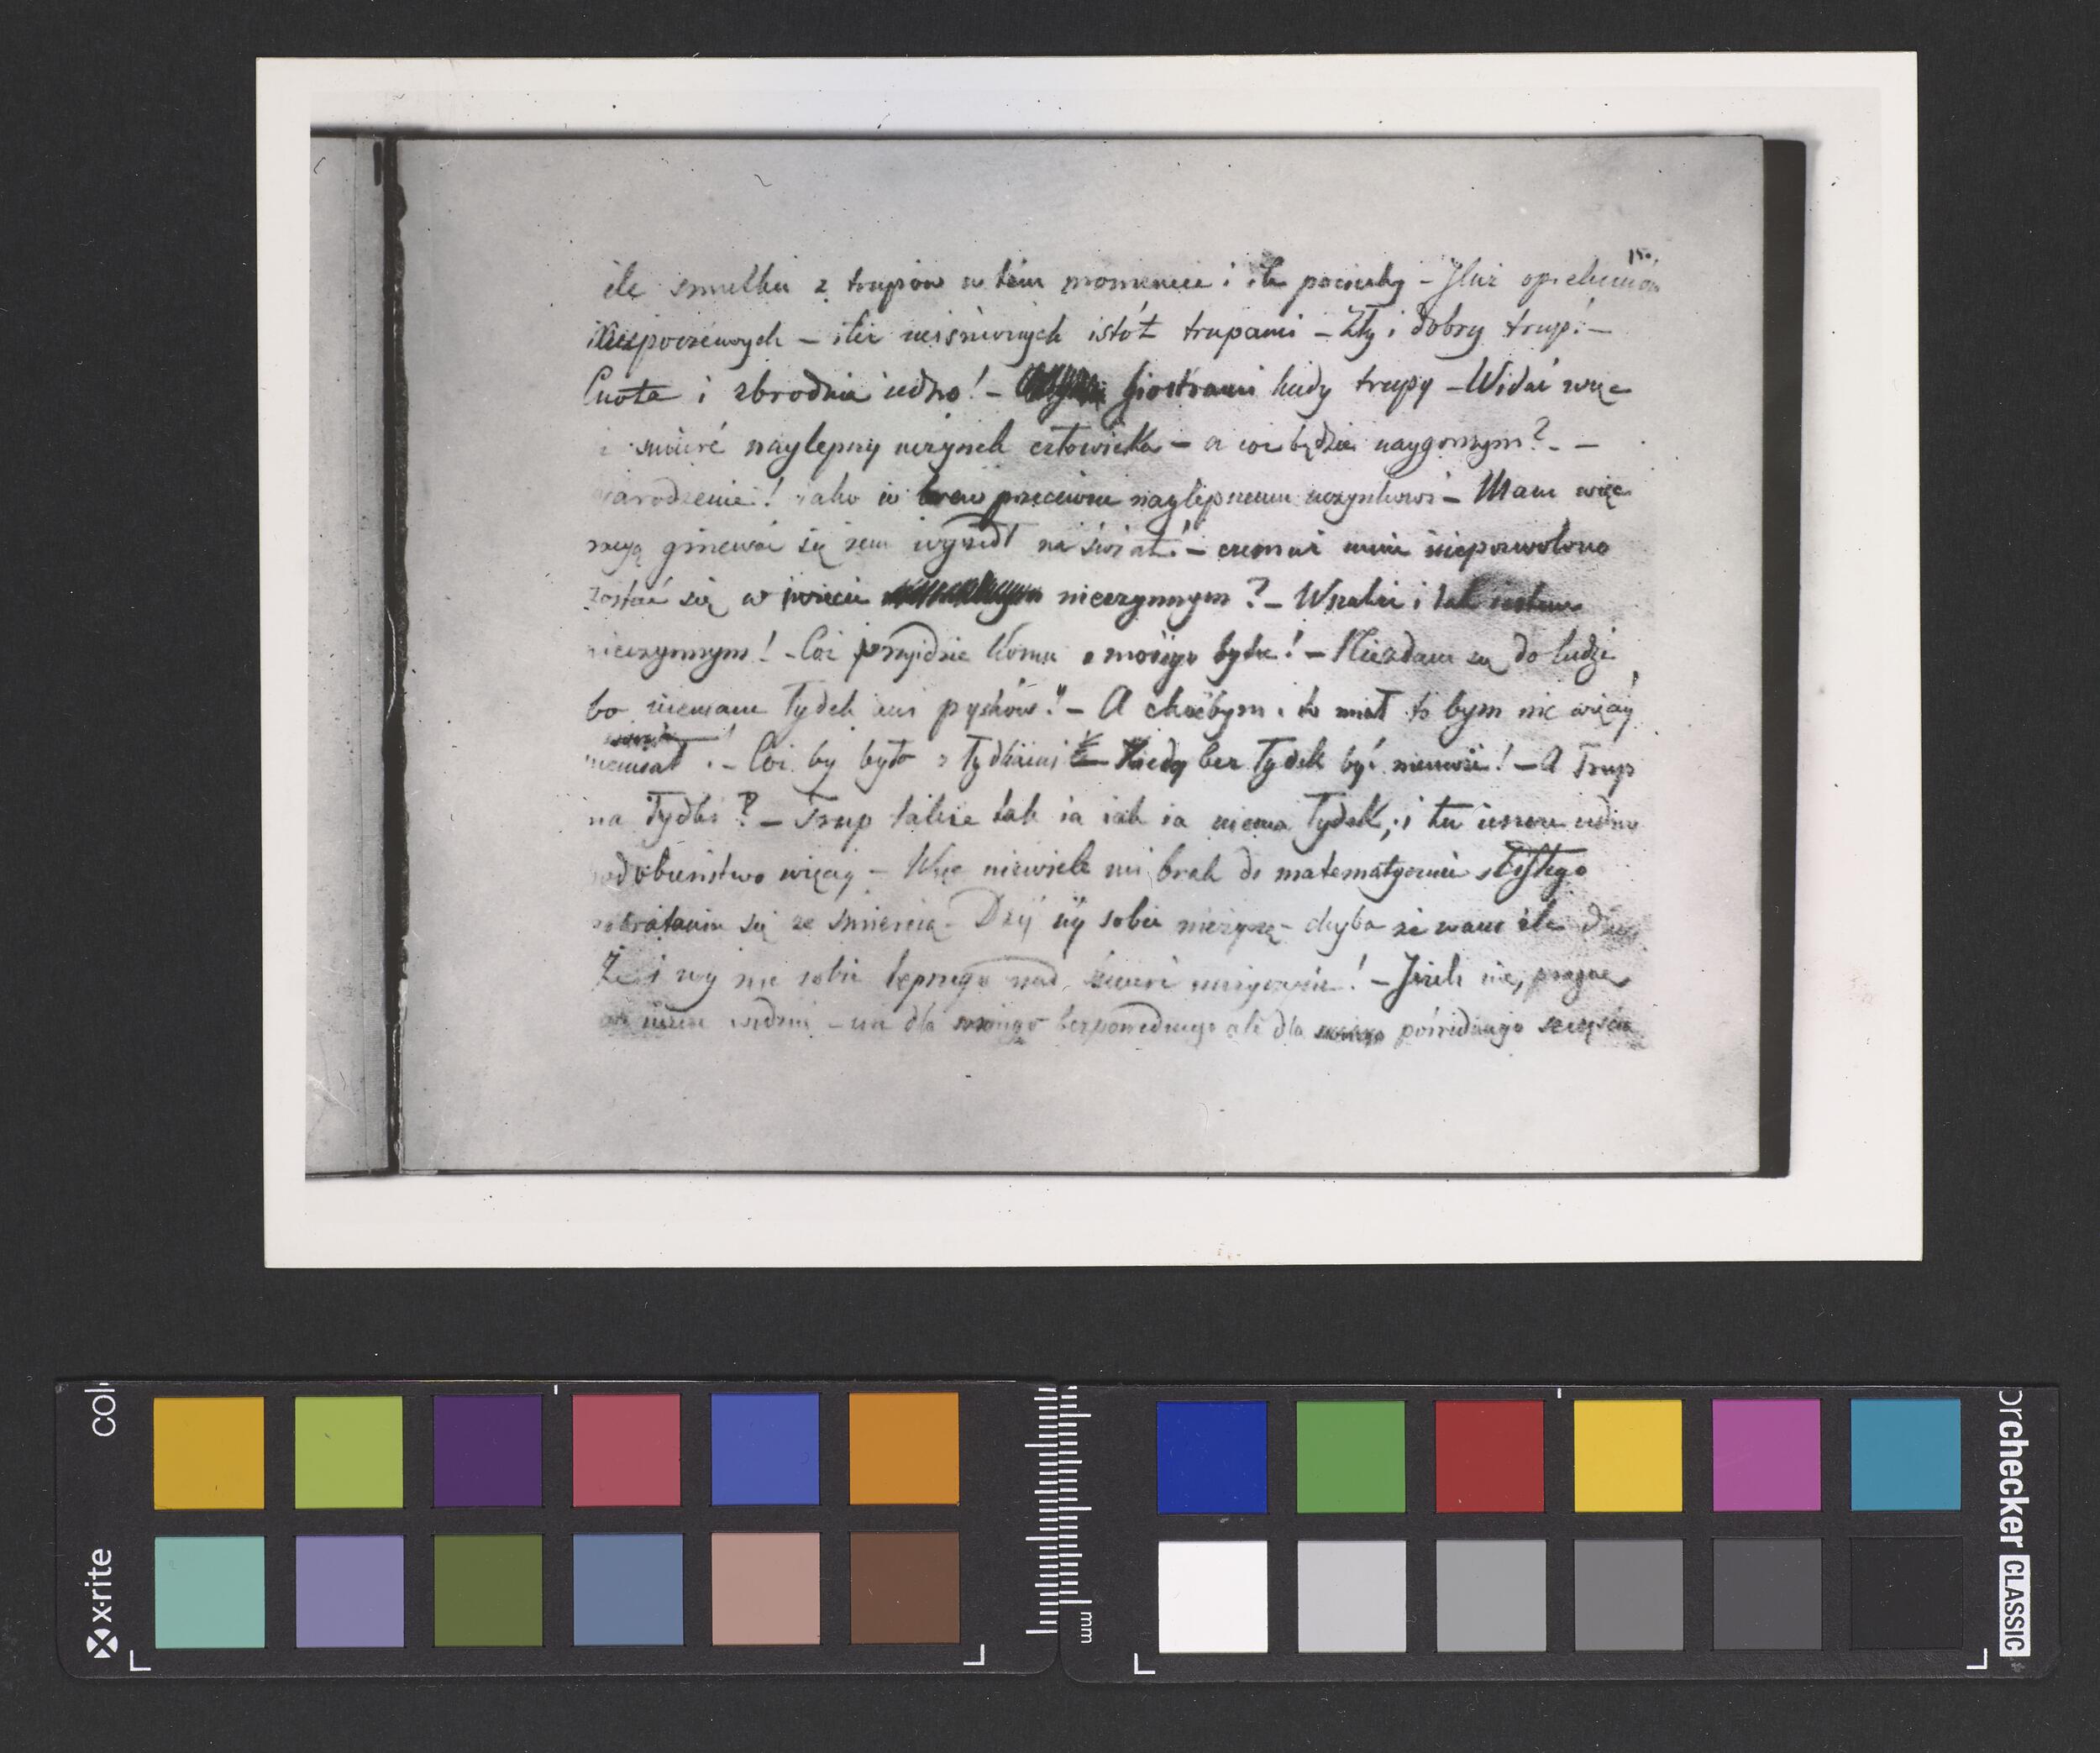 15.
ile smutku z trupów w tém momencie i ile pociechy – Iluż opiekunów
niepoczciwych – ileż nieszczęsnych istót trupami – Zły i dobry trup! –
Cnota i zbrodnia iedno! – Siostrami kiedy trupy – Widać więc
i śmierć naylepszy uczynek człowieka – a coż będzie naygorszym? –
narodzenie! iako iż wrew przeciwne naylepszemu uczynkowi – Mam więc
racyą gniewać się żem wyszedł na świat! – czemuż mnie niepozwolono
zostać się w świecie nieczynnym? – Wszakże i tak iestem
nieczynnym! – Coż przyjdzie komu z moiego bytu! – Niezdam się do ludzi
bo niemam łydek ani pysków! – A choćbym i to miał to bym nic więcéy
niemiał. – Coż by było z łydkami Kiedy bez łydek być niemoże! – A Trup
ma Łydki? – Trup także tak ia iak ia niema łydek, i tu ieszcze iedno
podobieństwo więcéy – Więc niewiele mi brak do matematycznie ścisłego
zbratania się ze śmiercią – Dziś iéy sobie nieżyczę – chyba że wam źle
Że i wy nic sobie lepszego nad śmierć nieżyczycie! – Jeżeli nie, pragnę
was ieszcze widzieć – nie dla moiego bezpośredniego ale dla pośredniego szczęścia
x-rite
mm
colorchecker CLASSIC